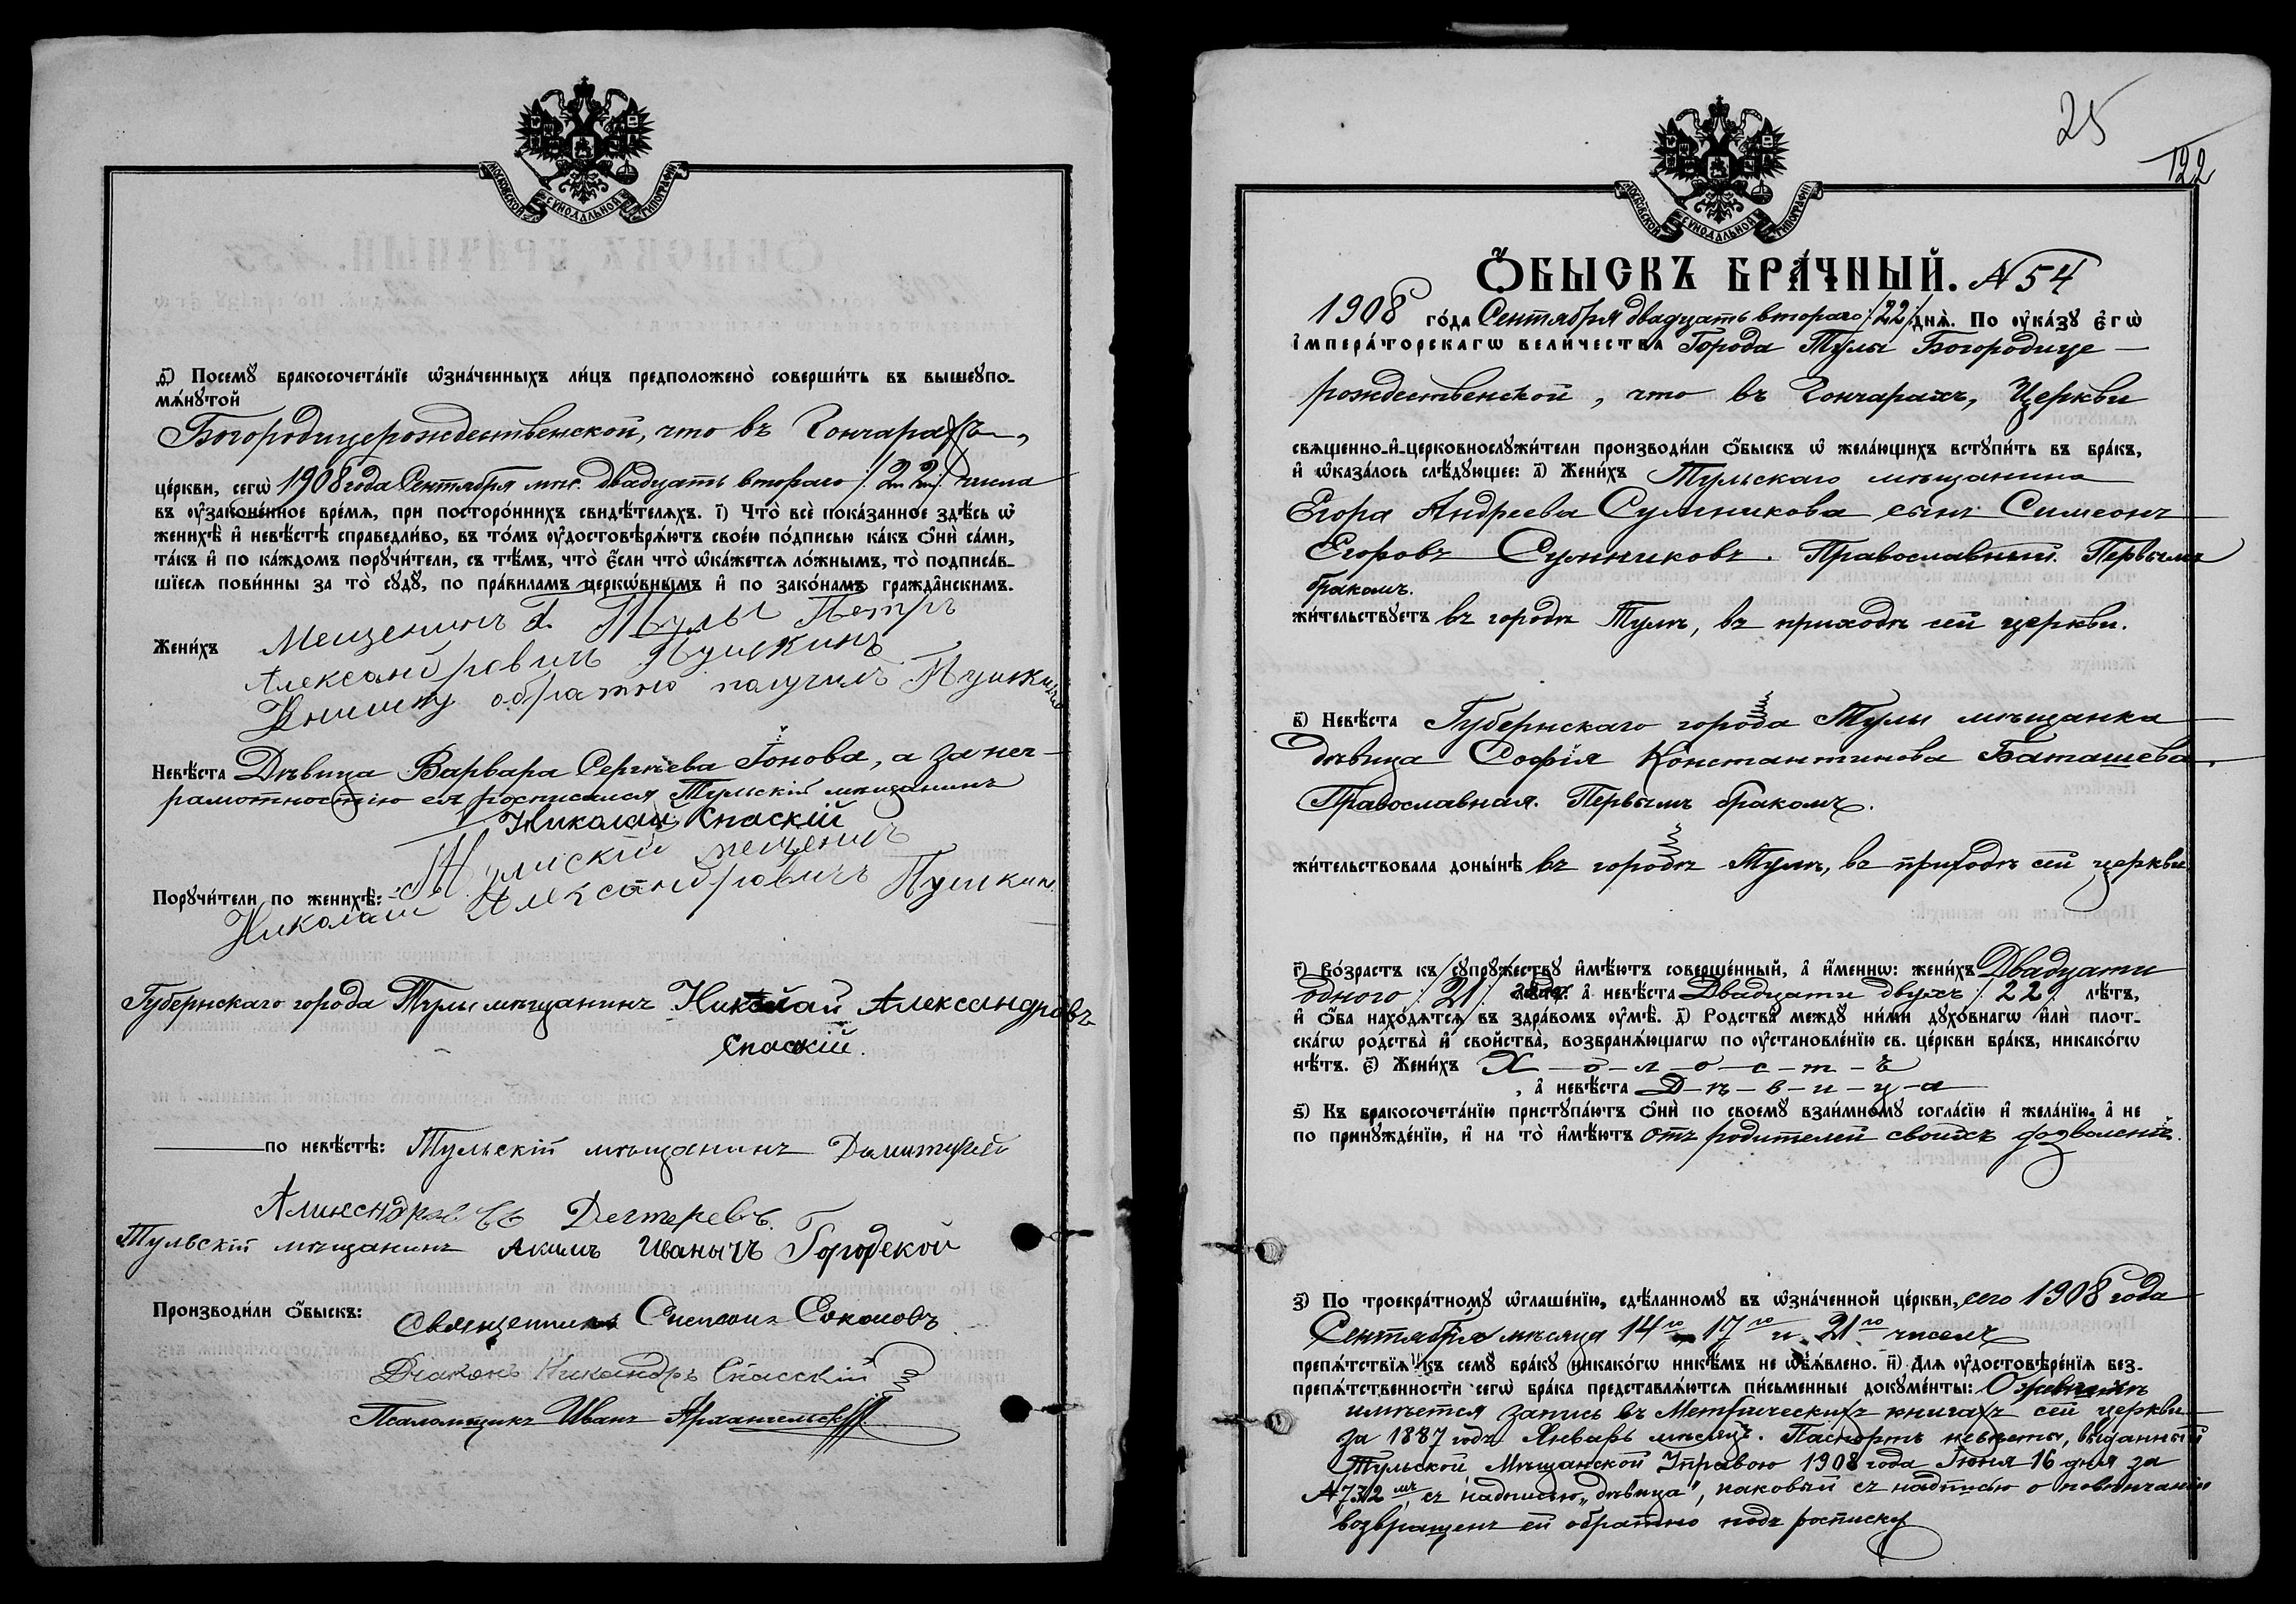 МОСКОВСКОЙ СѴНОДАЛЬНОЙ ТИПОГРАФІИ
д҃і) Посемꙋ бракосочета́нїе ѡ҆зна́ченныхъ ли́цъ предположено̀ соверши́ть въ вышеꙋпо-
мѧ́нꙋтой
Богородицерождественской, что въ Гончарахъ,
це́ркви, сегѡ̀ 1908 года Сентября мѣс. двадцать втораго /:22:/ числа
въ ᲂу҆зако́ненное вре́мѧ, при посторо́ннихъ свидѣ́телѧхъ. і҃) Что̀ всѐ пока́занное здѣ́сь ѡ҆
женихѣ̀ и҆ невѣ́стѣ справедли́во, въ то́мъ ᲂу҆достовѣрѧ́ютъ свое́ю по́дписью ка́къ ѻ҆нѝ са́ми,
та́къ и҆ по ка́ждомъ порꙋчи́тели, съ тѣ́мъ, что̀ є҆́сли что̀ ѡ҆ка́жется ло́жнымъ, то̀ подписа́в-
шїеся пови́нны за то̀ сꙋдꙋ̀, по пра́виламъ церко́внымъ и҆ по зако́намъ гражда̑нскимъ.
Жени́хъ Мещенинъ Г. Тулы Петръ
Александровичъ Пушкинъ
Книшку обратно получилъ Пушкинъ
Невѣ́ста Дѣвица Варвара Сергѣева Іонова, а за нег-
рамотностію ея росписался Тульскій мѣщанинъ
Николай Спаскій
Порꙋчи́тели по женихѣ̀: Тульскій мещенинъ
Николай Александровичъ Пушкин.
Губернскаго города Тулы мѣщанинъ Николай Александровъ
Спаскій.
по невѣ́стѣ: Тульскій мѣщанинъ Димитрей
Дегтеревъ.
Тульскій мѣщанинъ Акимъ Иванычъ Городской
Производи́ли ѻ҆́быскъ: Священникъ Симеонъ Соколовъ
Діаконъ Никандръ Спасскій
Псаломщикъ Иванъ Архангельскій
25
122
МОСКОВСКОЙ СѴНОДАЛЬНОЙ ТИПОГРАФІИ
Ѻ҆́БЫСКЪ БРА́ЧНЫЙ. N 54
1908 го́да Сентября двадцать втораго /:22:/ днѧ̀. По ᲂу҆ка́зꙋ є҆гѡ̀
і҆мпера́торскагѡ вели́чества Города Тулы Богородице-
рождественской, что въ Гончарахъ, Церкви
свѧщенно-и҆-церковнослꙋжи́тели производи́ли ѻ҆́быскъ ѡ҆ жела́ющихъ встꙋпи́ть въ бра́къ,
и҆ ѡ҆каза́лось слѣ́дꙋющее: а҃) Жени́хъ Тульскаго мѣщанина
Егора Андреева Сушникова сынъ Симеонъ
Егоровъ Сушниковъ. Православный. Первымъ
бракомъ.
жи́тельствꙋетъ въ городѣ Тулѣ, въ приходѣ сей церкви.
в҃) Невѣ́ста Губернскаго города Тулы мѣщанка
дѣвица Софія Константинова Баташева.
Православная. Первымъ бракомъ.
жи́тельствовала доны́нѣ въ городѣ Тулѣ, въ приходѣ сей церкви
г҃) Во́зрастъ къ сꙋпрꙋ́жествꙋ и҆мѣ́ютъ соверше́нный, а҆ и҆́меннѡ: жени́хъ Двадцати
одного /:21:/ года а҆ невѣ́ста Двадцати двухъ /:22:/ лѣ́тъ,
и҆ ѻ҆́ба нахо́дѧтсѧ въ здра́вомъ ᲂу҆мѣ̀. д҃) Родства̀ междꙋ ни́ми дꙋхо́внагѡ и҆лѝ плот-
ска́гѡ родства̀ и҆ свойства̀, возбранѧ́ющагѡ по ᲂу҆становле́нїю св. це́ркви бра́къ, никако́гѡ
нѣ́тъ. є҃) Жени́хъ Х-о-л-о-с-т-ъ
, а҆ невѣ́ста Д-ѣ-в-и-ц-а
ѕ҃) Къ бракосочета́нїю пристꙋпа́ютъ ѻ҆нѝ по своемꙋ̀ взаи́мномꙋ согла́сїю и҆ жела́нїю, а҆ не
по принꙋжде́нїю, и҆ на то̀ и҆мѣ́ютъ отъ родителей своихъ дозволеніе.
з҃) По троекра́тномꙋ ѡ҆глаше́нїю, сдѣ́ланномꙋ въ ѡ҆зна́ченной це́ркви, сего 1908 года
Сентября мѣсяца 14го 17го и 21го чиселъ
препѧ́тствїѧ къ семꙋ̀ бра́кꙋ никако́гѡ никѣ́мъ не ѡ҆б̾ѧ́влено. и҃) Длѧ ᲂу҆достовѣре́нїѧ без-
препѧ́тственности сегѡ̀ бра́ка представлѧ́ютсѧ пи́сьменные докꙋме́нты: О женихѣ
имѣется запись въ Метрическихъ книгахъ сей церкви
за 1887 годъ Январь мѣсяцъ. Паспортъ невѣсты, выданный
Тульской Мѣщанской Управою 1908 года Іюня 16 дня за
N 732 мъ, съ надписью „дѣвица", каковый съ надписью о повѣнчаніи
возвращенъ ей обратно подъ росписку